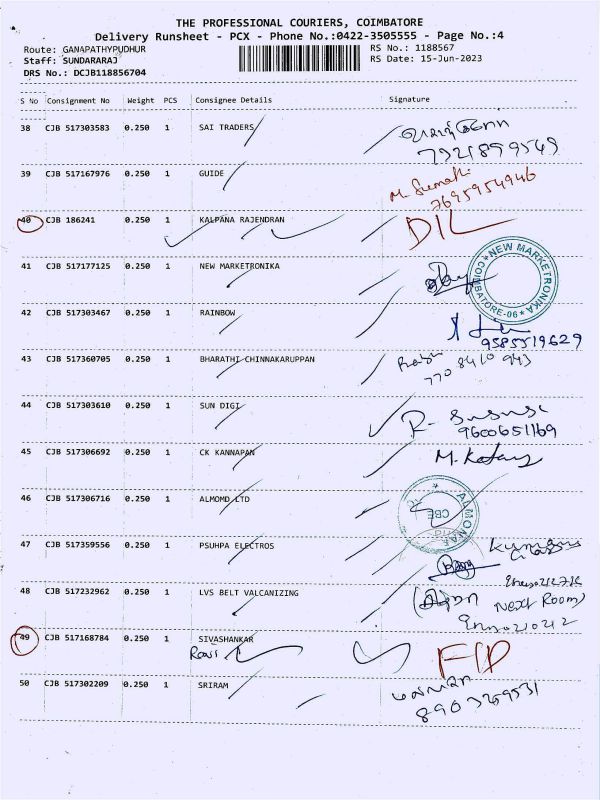 THE PROFESSIONAL COURIERS, COIMBATORE
Delivery Runsheet - PCX - Phone No.:0422-3505555 - Page No.:4
Route: GANAPATHYPUDHUR RS No.: 1188567
Staff: SUNDARARAJ RS Date: 15-Jun-2023
DRS No.: DCJB118856704
S No Consignment No Weight PCS Consignee Details Signature
38 CJB 517303583 0.250 1 SAI TRADERS
7921899549
39 CJB 517167976 0.250 1 GUIDE M. Sumathi
7695954946
40 CJB 186241 0.250 1 KALPANA RAJENDRAN DIL
41 CJB 517177125 0.250 1 NEW MARKETRONIKA
NEW MARKETRONIKA ★ COIMBATORE-06 ★
42 CJB 517303467 0.250 1 RAINBOW
9585519629
43 CJB 517360705 0.250 1 BHARATHI CHINNAKARUPPAN
770 8410 943
44 CJB 517303610 0.250 1 SUN DIGI
9600651169
45 CJB 517306692 0.250 1 CK KANNAPAN M.
46 CJB 517306716 0.250 1 ALMOMD LTD
CBE
47 CJB 517359556 0.250 1 PSUHPA ELECTROS
48 CJB 517232962 0.250 1 LVS BELT VALCANIZING
Next Room)
49 CJB 517168784 0.250 1 SIVASHANKAR
Ravi
50 CJB 517302209 0.250 1 SRIRAM
8903269531